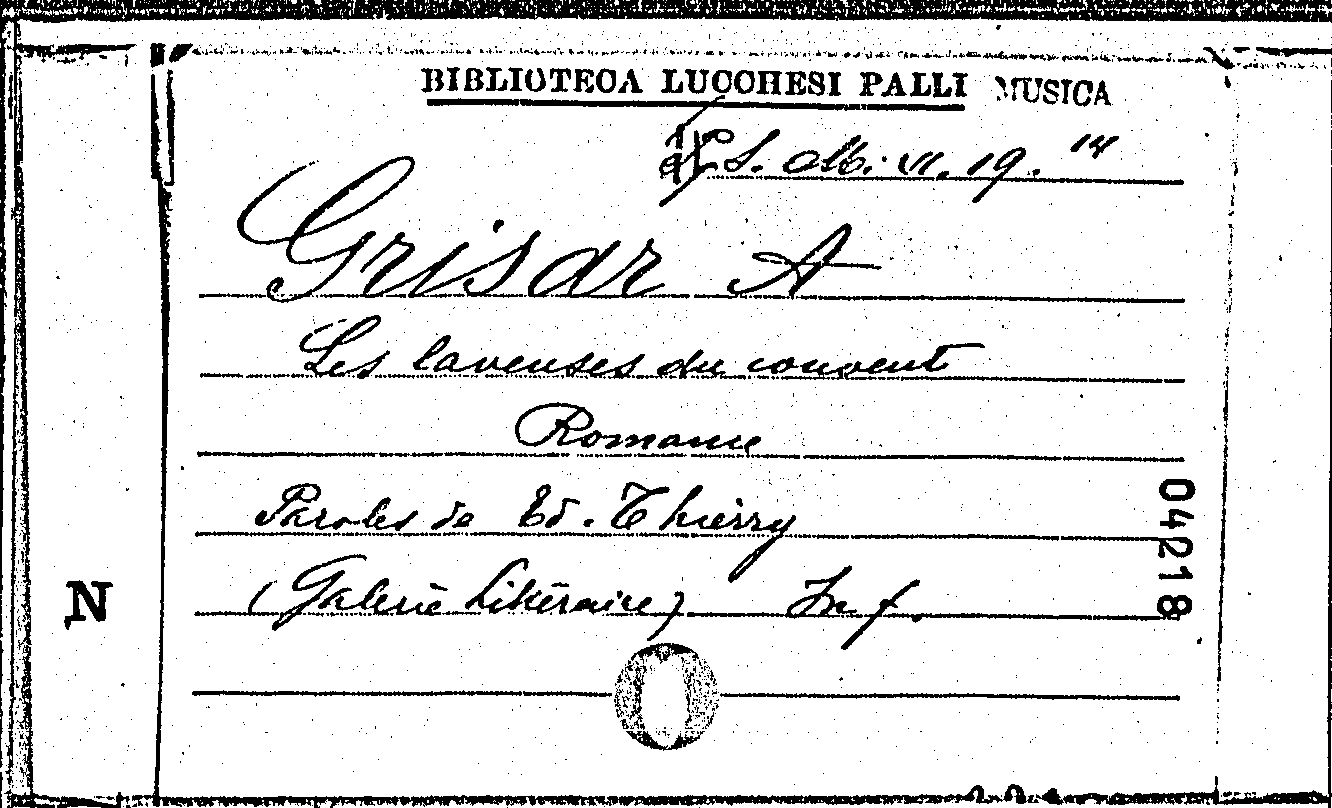 BIBLIOTECA LUCCHESI PALLI MUSICA
S. M. VI. 19. 14
Grisar A
Les laveuses du couvent
Romance
Paroles de Ed. Thierry
(Galerie Litéraire) In f.
04218
N